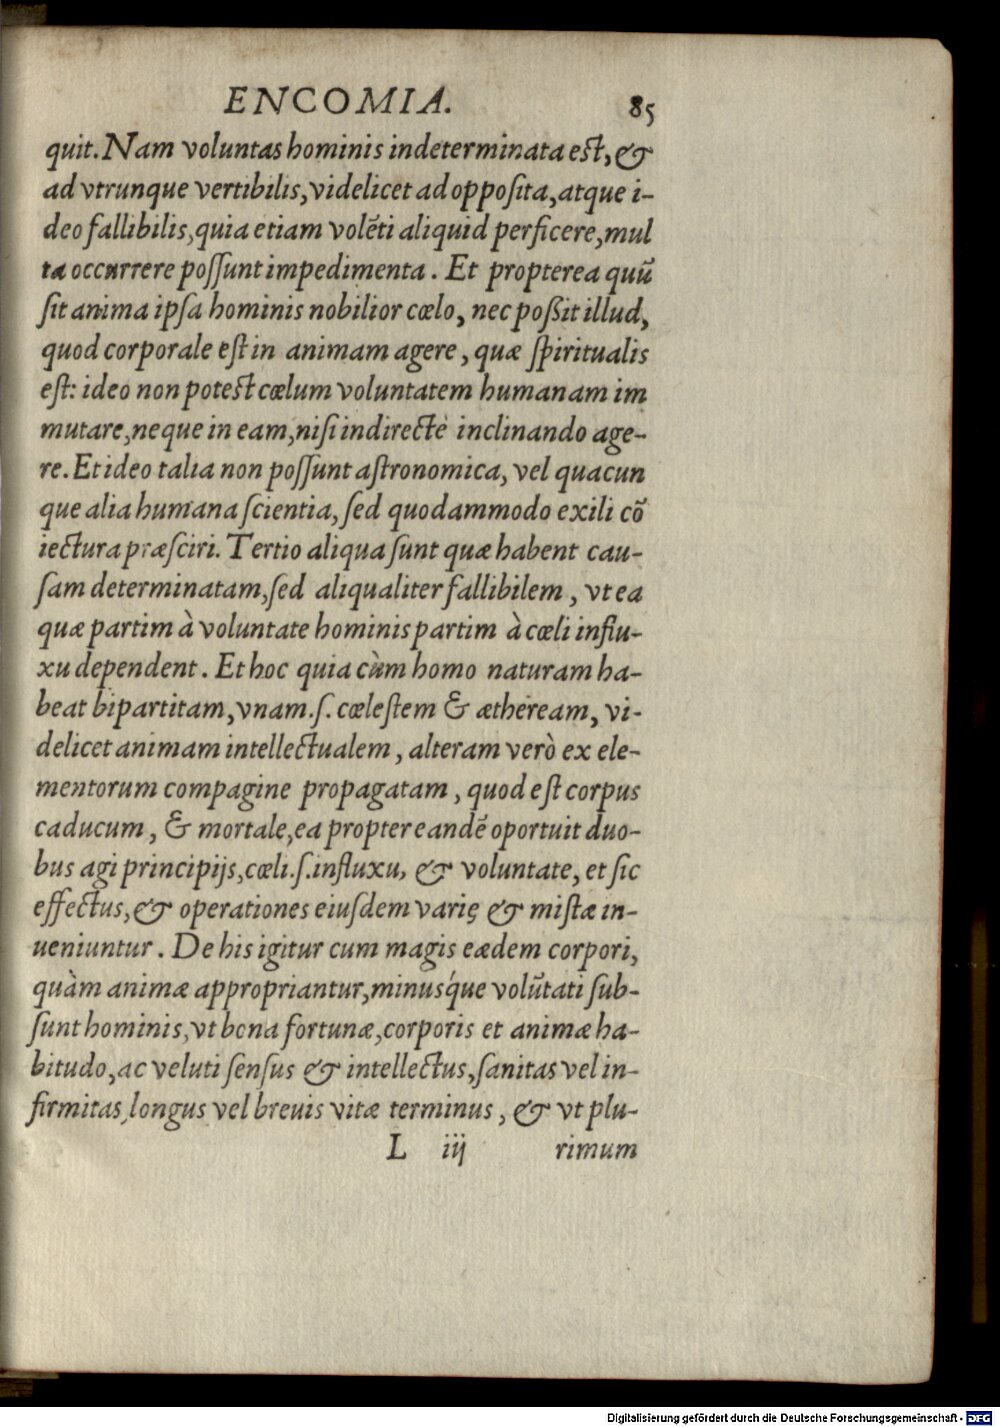 ENCOMIA. 85
quit. Nam voluntas hominis indeterminata est, &
ad vtrunque vertibilis, videlicet ad opposita, atque i-
deo fallibilis, quia etiam volẽti aliquid perficere, mul
ta occurrere possunt impedimenta. Et propterea quũ
sit anima ipsa hominis nobilior cœlo, nec poßit illud,
quod corporale est in animam agere, quæ spiritualis
est: ideo non potest cœlum voluntatem humanam im
mutare, neque in eam, nisi indirectè inclinando age-
re. Et ideo talia non possunt astronomica, vel quacun
que alia humana scientia, sed quodammodo exili cõ
iectura præsciri. Tertio aliqua sunt quæ habent cau-
sam determinatam, sed aliqualiter fallibilem, vt ea
quæ partim à voluntate hominis partim à cœli influ-
xu dependent. Et hoc quia cùm homo naturam ha-
beat bipartitam, vnam .s. cœlestem & ætheream, vi-
delicet animam intellectualem, alteram verò ex ele-
mentorum compagine propagatam, quod est corpus
caducum, & mortale, ea propter eandẽ oportuit duo-
bus agi principijs, cœli .s. influxu, & voluntate, et sic
effectus, & operationes eiusdem varię & mistæ in-
ueniuntur. De his igitur cum magis eædem corpori,
quàm animæ approprientur, minusq́ue volũtati sub-
sunt hominis, vt bona fortunæ, corporis et animæ ha-
bitudo, ac veluti sensus & intellectus, sanitas vel in-
firmitas, longus vel breuis vitæ terminus, & vt plu-
L iij rimum
Digitalisierung gefördert durch die Deutsche Forschungsgemeinschaft - DFG